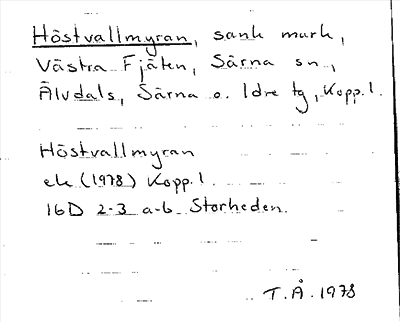 Höstvallmyran, sank mark,
Västra Fjäten, Särna sn,
Älvdals, Särna o. Idre tg, Kopp. l.
Höstvallmyran
ek (1978) Kopp. l.
16D 2-3 a-b Storheden.
T.Å. 1978